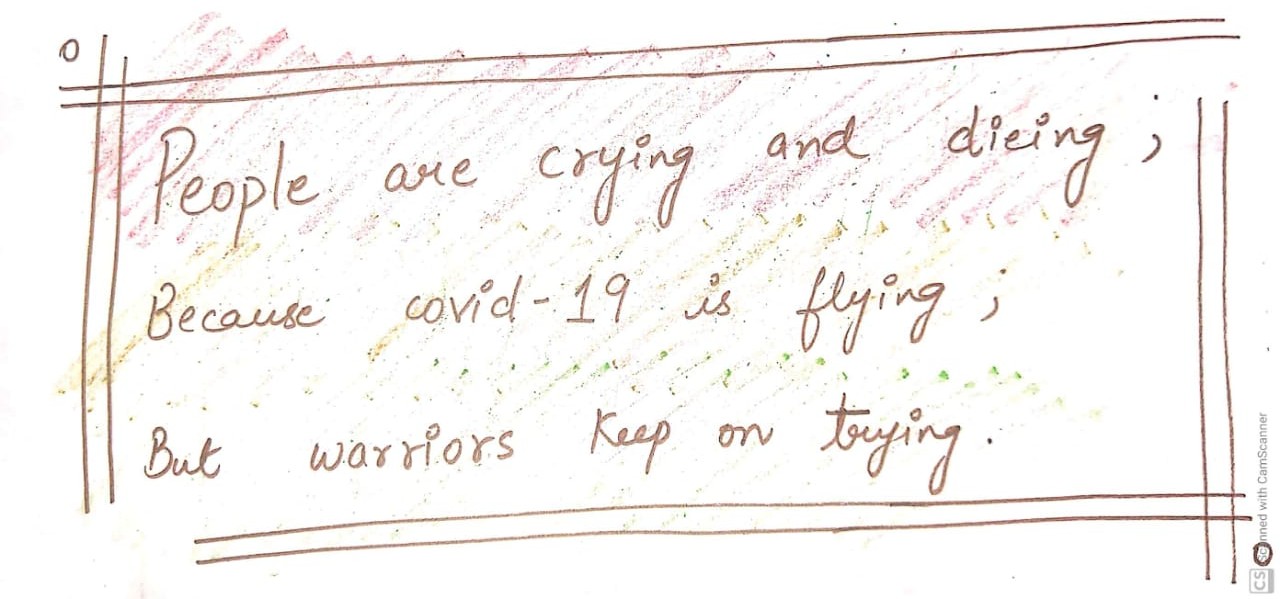 People are crying and dieing ;
Because covid-19 is flying ;
But warriors keep on trying.
CS Scanned with CamScanner